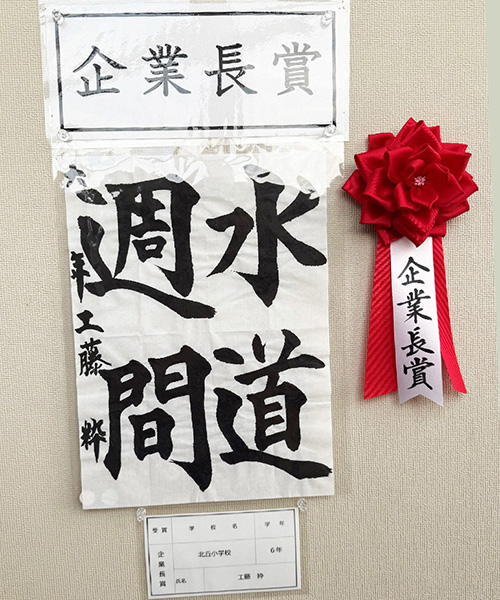 企業長賞
水道
週間
六年 工藤 粋
企業長賞
受賞 学校名 学年
企業長賞 北丘小学校 6年
氏名 工藤 粋